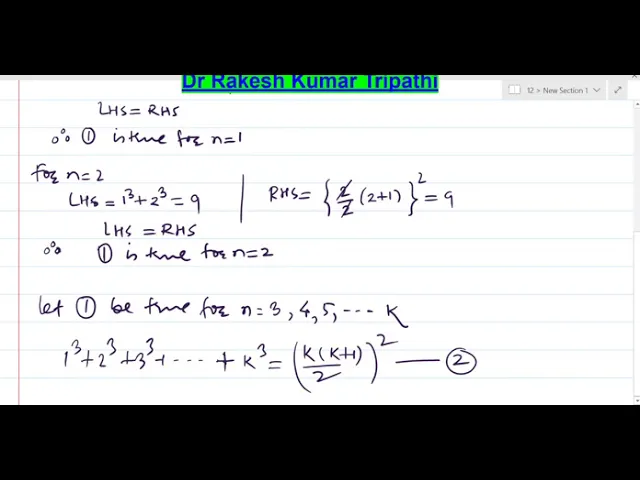 Dr Rakesh Kumar Tripathi
12 > New Section 1
LHS = RHS
∴ ① is true for n=1
For n=2
LHS = 1³+2³ = 9 | RHS = {2/2 (2+1)}² = 9
LHS = RHS
∴ ① is true for n=2
Let ① be true for n=3, 4, 5, ---- K
1³+2³+3³+---- + K³ = (K(K+1)/2)² —— ②